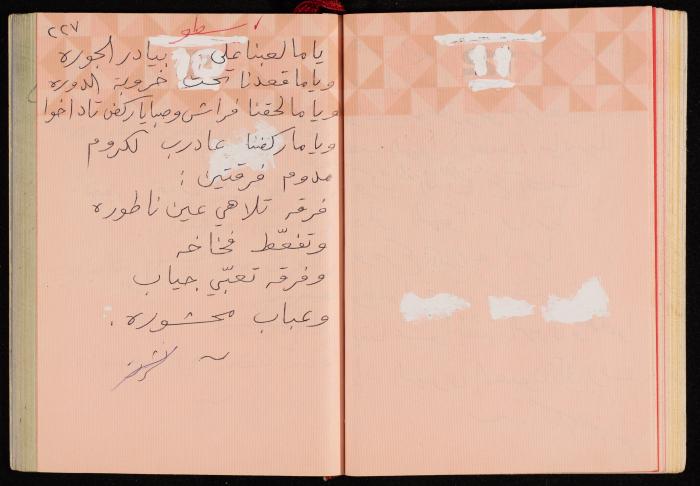 ٢٢٧
سطو
ياما لعبنا على بيادر الجوره
وياما قعدنا تحت خروبة الدوره
وياما لحقنا فراش وصبايا ركض تاداخوا
وياما ركضنا عادرب لكروم
مدوم فرقتين :
فرقه تلاهي عين ناطوره
وتفقّط فخاخه
وفرقه تعبّي جياب
وعباب محشوره .